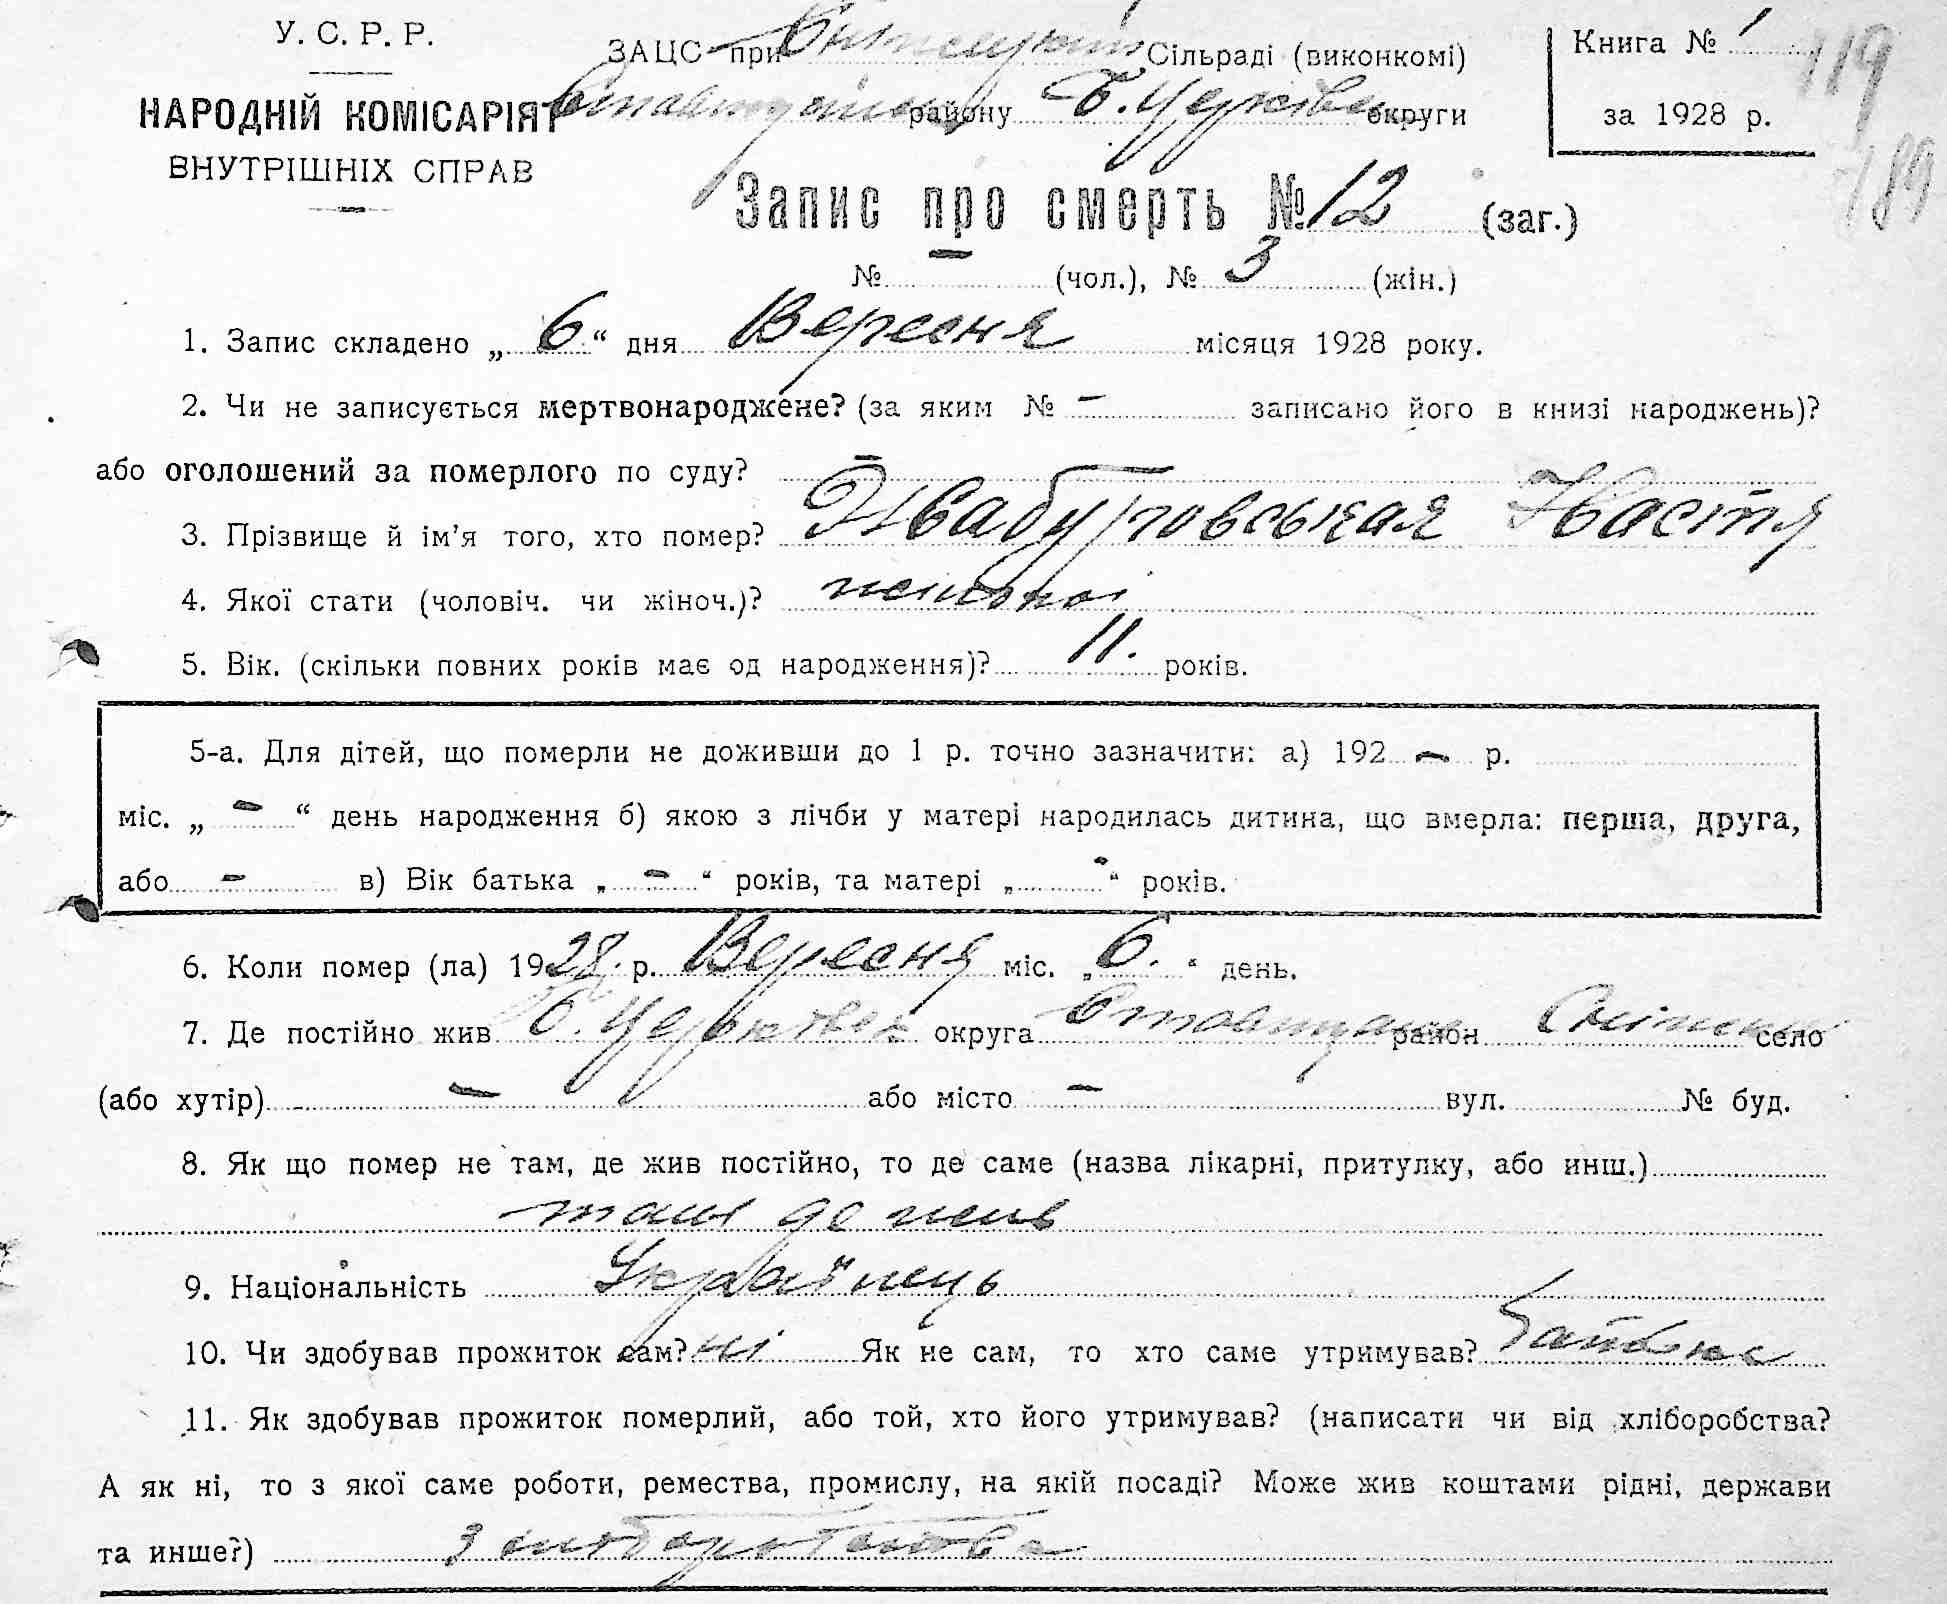 У. С. Р. Р.
НАРОДНІЙ КОМІСАРІЯТ
ВНУТРІШНІХ СПРАВ
ЗАЦС при Сільраді (виконкомі)
району Б. Церківськ. округи
Книга № 1
за 1928 р.
119
189
Запис про смерть № 12 (заг.)
№ – (чол.), № 3 (жін.)
1. Запис складено „ 6 “ дня Вересня місяця 1928 року.
2. Чи не записується мертвонароджене? (за яким № – записано його в книзі народжень)?
або оголошений за померлого по суду? –
3. Прізвище й ім'я того, хто помер? Настя
4. Якої стати (чоловіч. чи жіноч.)? жіночої
5. Вік. (скільки повних років має од народження)? 11. років.
5-а. Для дітей, що померли не доживши до 1 р. точно зазначити: а) 192 – р.
міс. „ – “ день народження б) якою з лічби у матері народилась дитина, що вмерла: перша, друга,
або – в) Вік батька „ – “ років, та матері „ - “ років.
6. Коли помер (ла) 1928. р. Вересня міс. „ 6. “ день.
7. Де постійно жив Б. Церківськ округа район село
(або хутір) – або місто – вул. № буд.
8. Як що помер не там, де жив постійно, то де саме (назва лікарні, притулку, або инш.)
там де жив
9. Національність Українець
10. Чи здобував прожиток сам? ні Як не сам, то хто саме утримував? батько
11. Як здобував прожиток померлий, або той, хто його утримував? (написати чи від хліборобства?
А як ні, то з якої саме роботи, ремества, промислу, на якій посаді? Може жив коштами рідні, держави
та инше?) з хліборобства